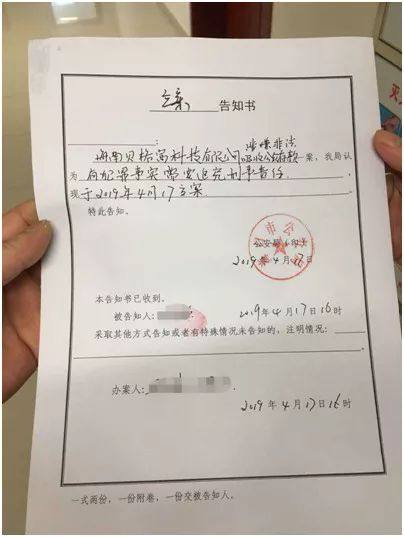 立案 告知书
涉嫌非法
海南贝格富科技有限公司吸收公众存款一案，我局认
为 有犯罪事实需要追究刑事责任
现于2019年4月17立案。
特此告知。
公安局（印）
2019年4月17日
本告知书已收到。
被告知人： 2019年4月17日16时
采取其他方式告知或者有特殊情况未告知的，注明情况：
办案人：
2019年4月17日16时
一式两份，一份附卷，一份交被告知人。